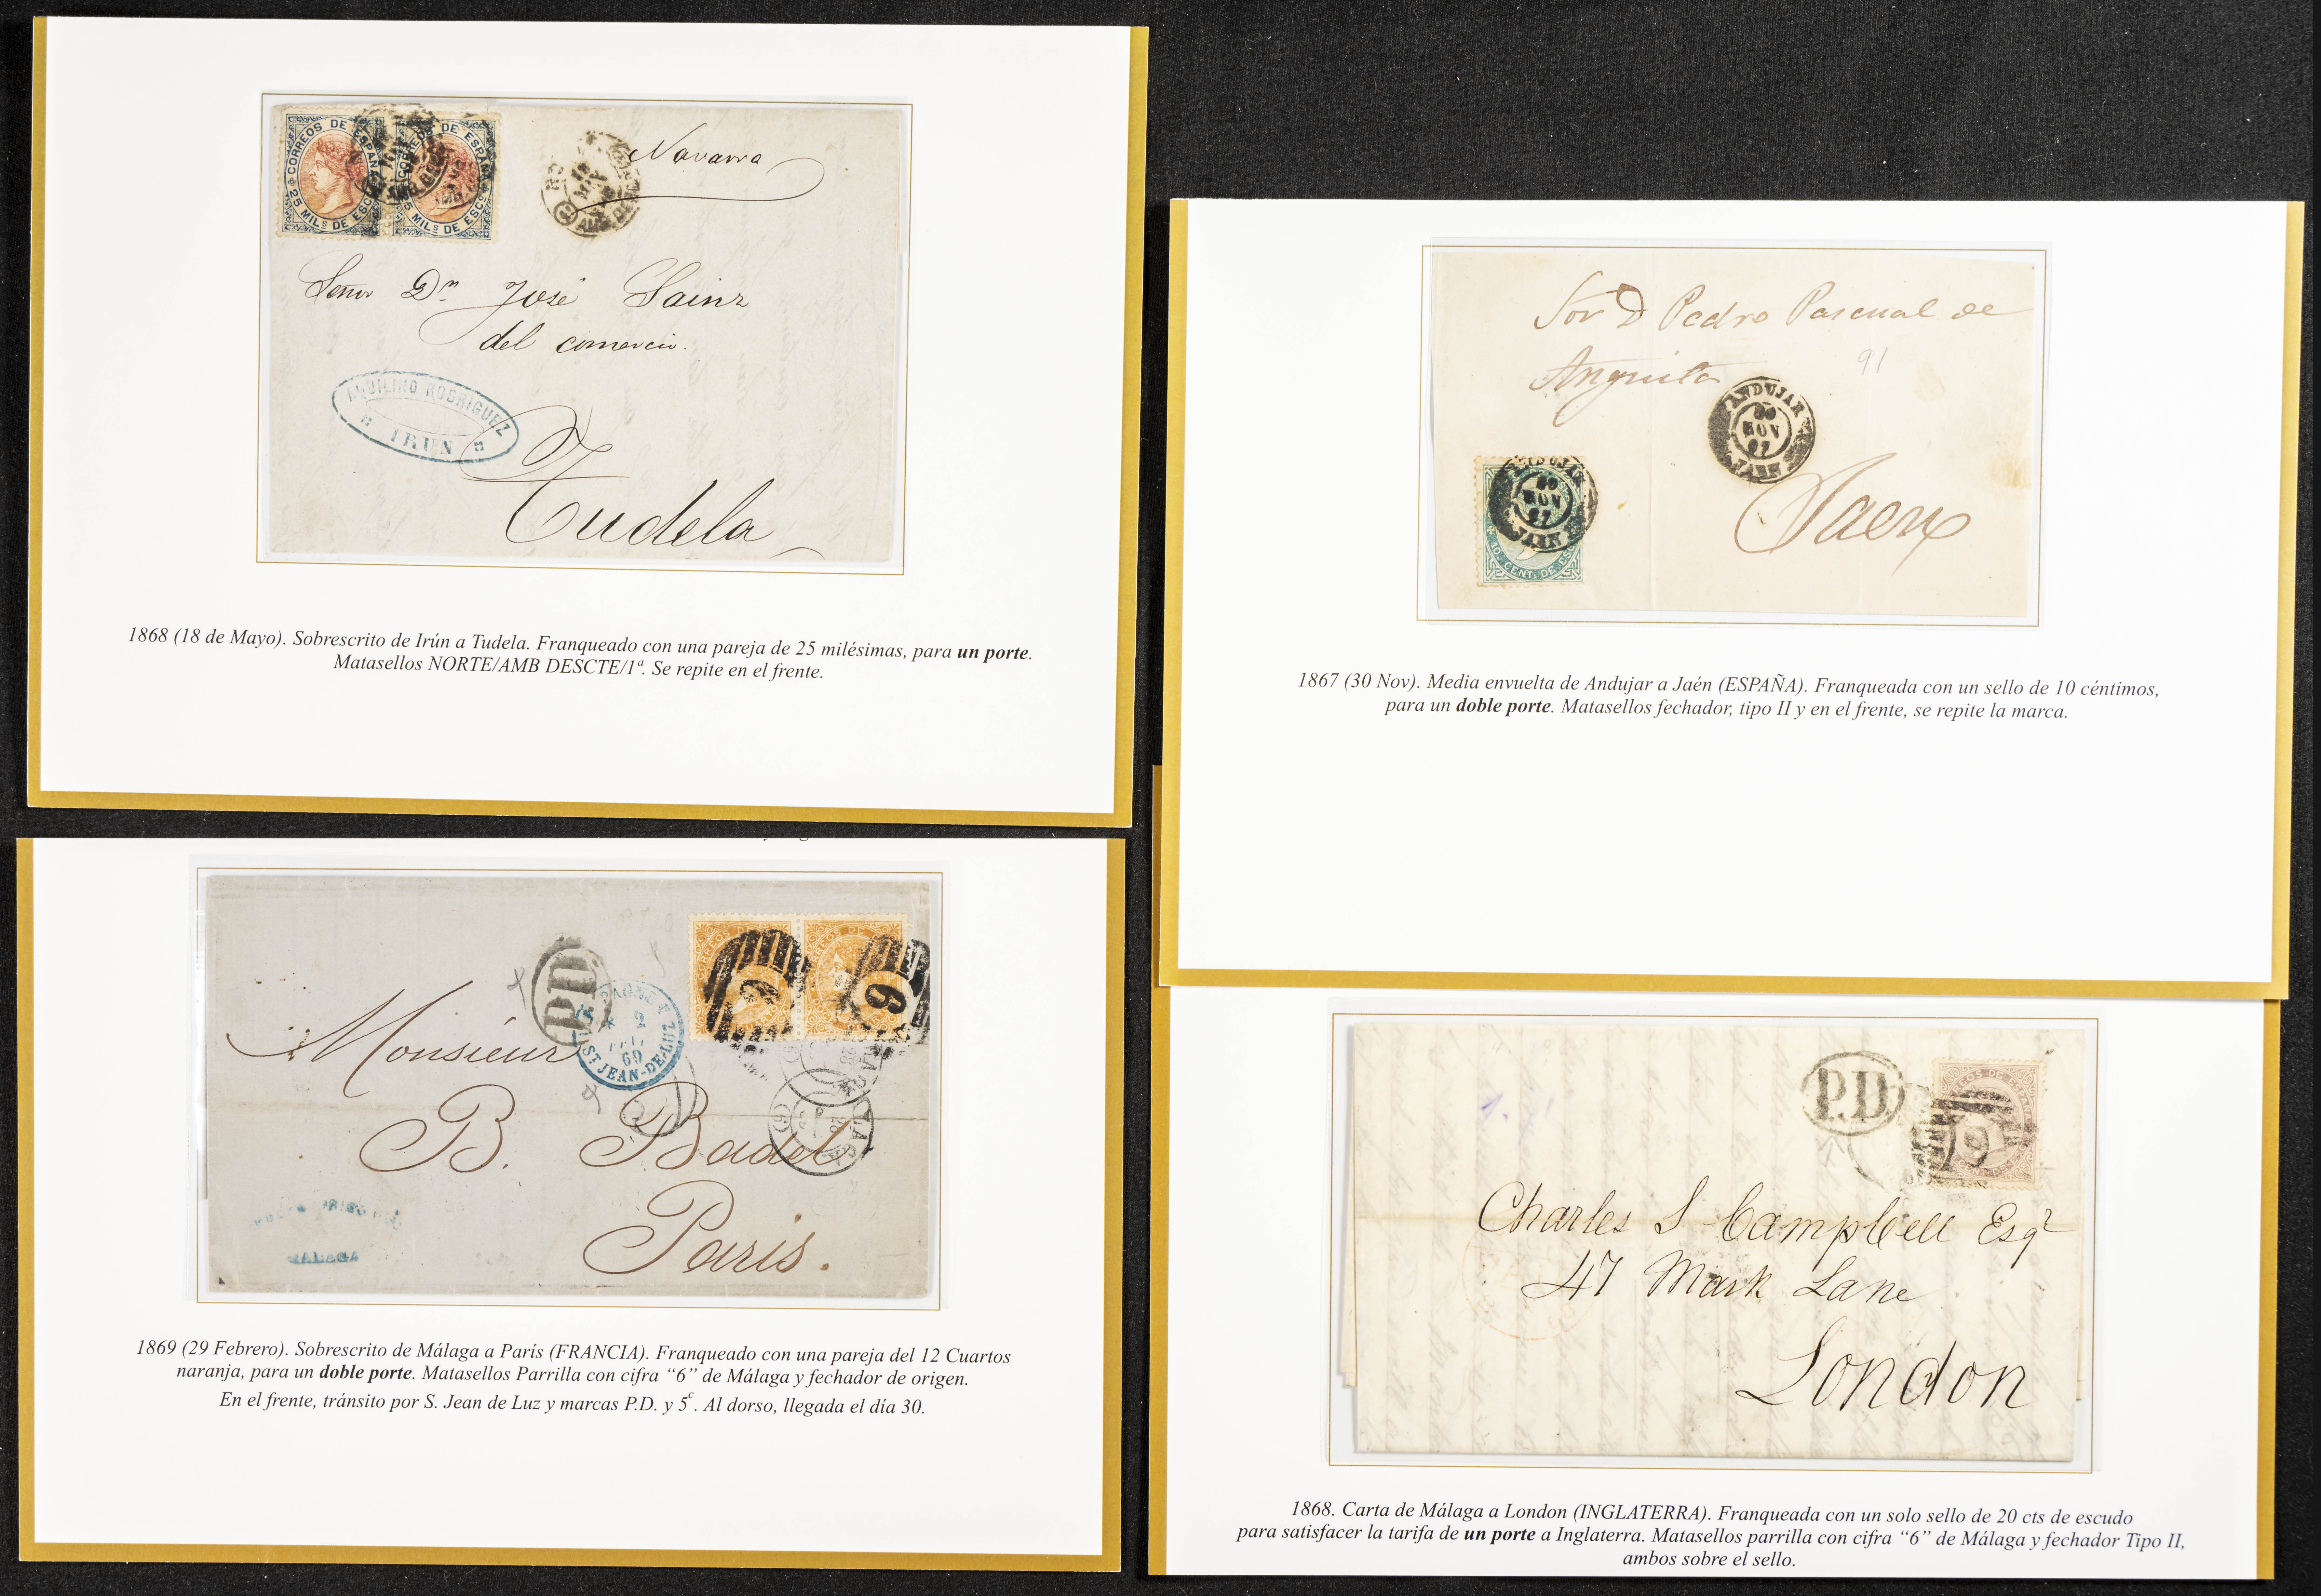 CORREOS DE ESPAÑA
25 MILS DE ESCO
CORREOS DE ESPAÑA
25 MILS DE ESCO
Navarra
Señor Dn José Sainz
del comercio.
AQUILINO RODRIGUEZ
IRUN
Tudela
1868 (18 de Mayo). Sobrescrito de Irún a Tudela. Franqueado con una pareja de 25 milésimas, para un porte.
Matasellos NORTE/AMB DESCTE/1ª. Se repite en el frente.
Sor D Pedro Pascual de
Anguita
91
ANDUJAR
30
NOV
67
JAEN
ANDUJAR
30
NOV
67
JAEN
10 CENT. DE ESCO
Jaen
1867 (30 Nov). Media envuelta de Andujar a Jaén (ESPAÑA). Franqueada con un sello de 10 céntimos,
para un doble porte. Matasellos fechador, tipo II y en el frente, se repite la marca.
P.D.
6
6
2
69
ST JEAN-DE-LUZ
Monsieur
B. Badel
Paris.
MALAGA
1869 (29 Febrero). Sobrescrito de Málaga a París (FRANCIA). Franqueado con una pareja del 12 Cuartos
naranja, para un doble porte. Matasellos Parrilla con cifra “6” de Málaga y fechador de origen.
En el frente, tránsito por S. Jean de Luz y marcas P.D. y 5c. Al dorso, llegada el día 30.
P.D.
6
Charles S Campbell Esqr
47 Mark Lane
London
1868. Carta de Málaga a London (INGLATERRA). Franqueada con un solo sello de 20 cts de escudo
para satisfacer la tarifa de un porte a Inglaterra. Matasellos parrilla con cifra “6” de Málaga y fechador Tipo II,
ambos sobre el sello.